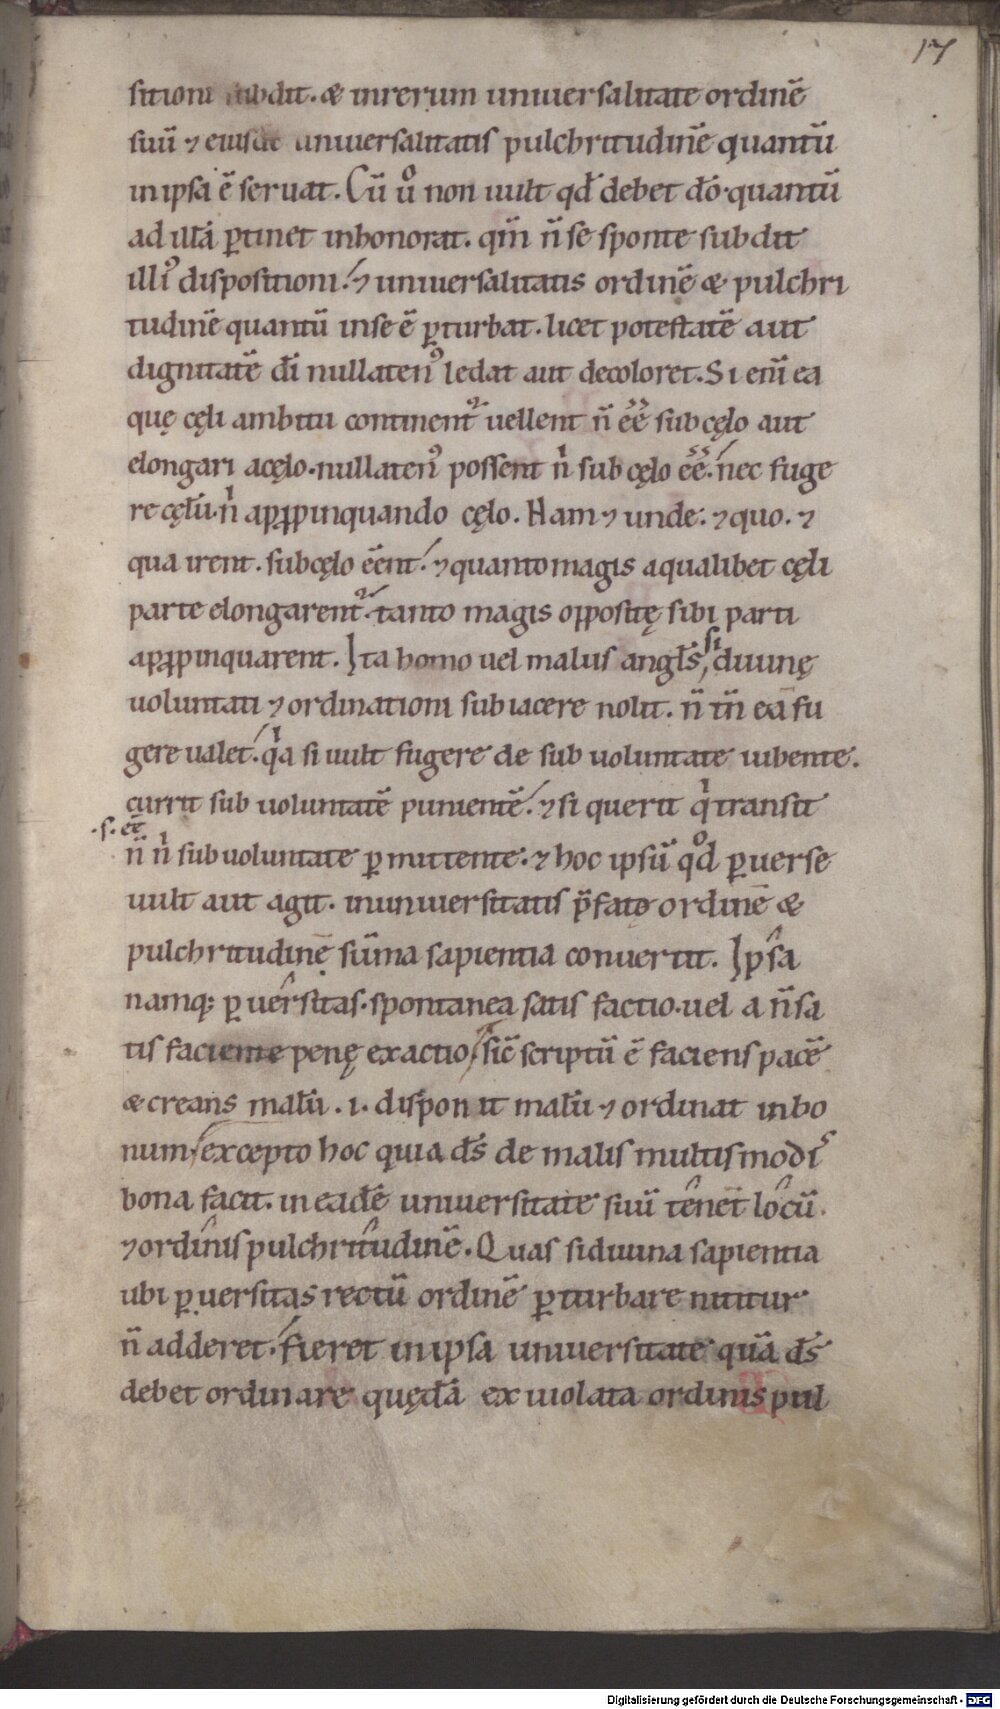 17
sitioni subdit. & inrerum uniuersalitate ordinē
suū ⁊ eiusdē uniuersalitatis pulchritudinē quantū
inipsa ē seruat. Cū ů non uult qd̄ debet dō·quantū
ad illā ꝑtinet inhonorat. qm̄ n̄ se sponte subdit
illiꝰ dispositioni. ⁊ uniuersalitatis ordinē & pulchri
tudinē quantū inse ē ꝑturbat. licet potestatē aut
dignitatē dī nullatenꝰ ledat aut decoloret. Si enī ea
quę cęli ambitu continent᷑ uellent n̄ ēē sub cęlo aut
elongari acęlo. nullatenꝰ possent nͥ sub cęlo ēē. nec fuge
re cęlū. nͥ aꝓpinquando cęlo. Nam ⁊ unde. ⁊ quo. ⁊
qua irent. subcęlo ēent. ⁊ quantomagis aqualibet cęli
parte elongarent᷑. tanto magis oppositę sibi parti
aꝓpinquarent. Ita homo uel malus angl̄s, si diuinę
uoluntati ⁊ ordinationi subiacere nolit. n̄ tn̄ eā fu
gere ualet. qͥa si uult fugere de sub uoluntate iubente.
currit sub uoluntatē punientē. ⁊ si querit qͥ transit
.s. et
n̄ nͥ sub uoluntate ꝑmittente. ⁊ hoc ipsū qͦd ꝑuerse
uult aut agit. inuniuersitatis p̄fatę ordinē &
pulchritudinē sūma sapientia conuertit. Ipsa
namq; ꝑuersitas. spontanea satis factio. uel a n̄ sa
tis faciente penę exactio, sic̄ scriptū ē faciens pacē
& creans malū .i. disponit malū ⁊ ordinat inbo
num excepto hoc quia ds̄ de malis multismodis
bona facit. in eadē uniuersitate suū tenet locū.
⁊ ordinis pulchritudinē. Quas si diuina sapientia
ubi ꝑuersitas rectū ordinē ꝑturbare nititur
n̄ adderet. fieret inipsa uniuersitate quā ds̄
debet ordinare quędā ex uiolata ordinis pul
Digitalisierung gefördert durch die Deutsche Forschungsgemeinschaft - DFG